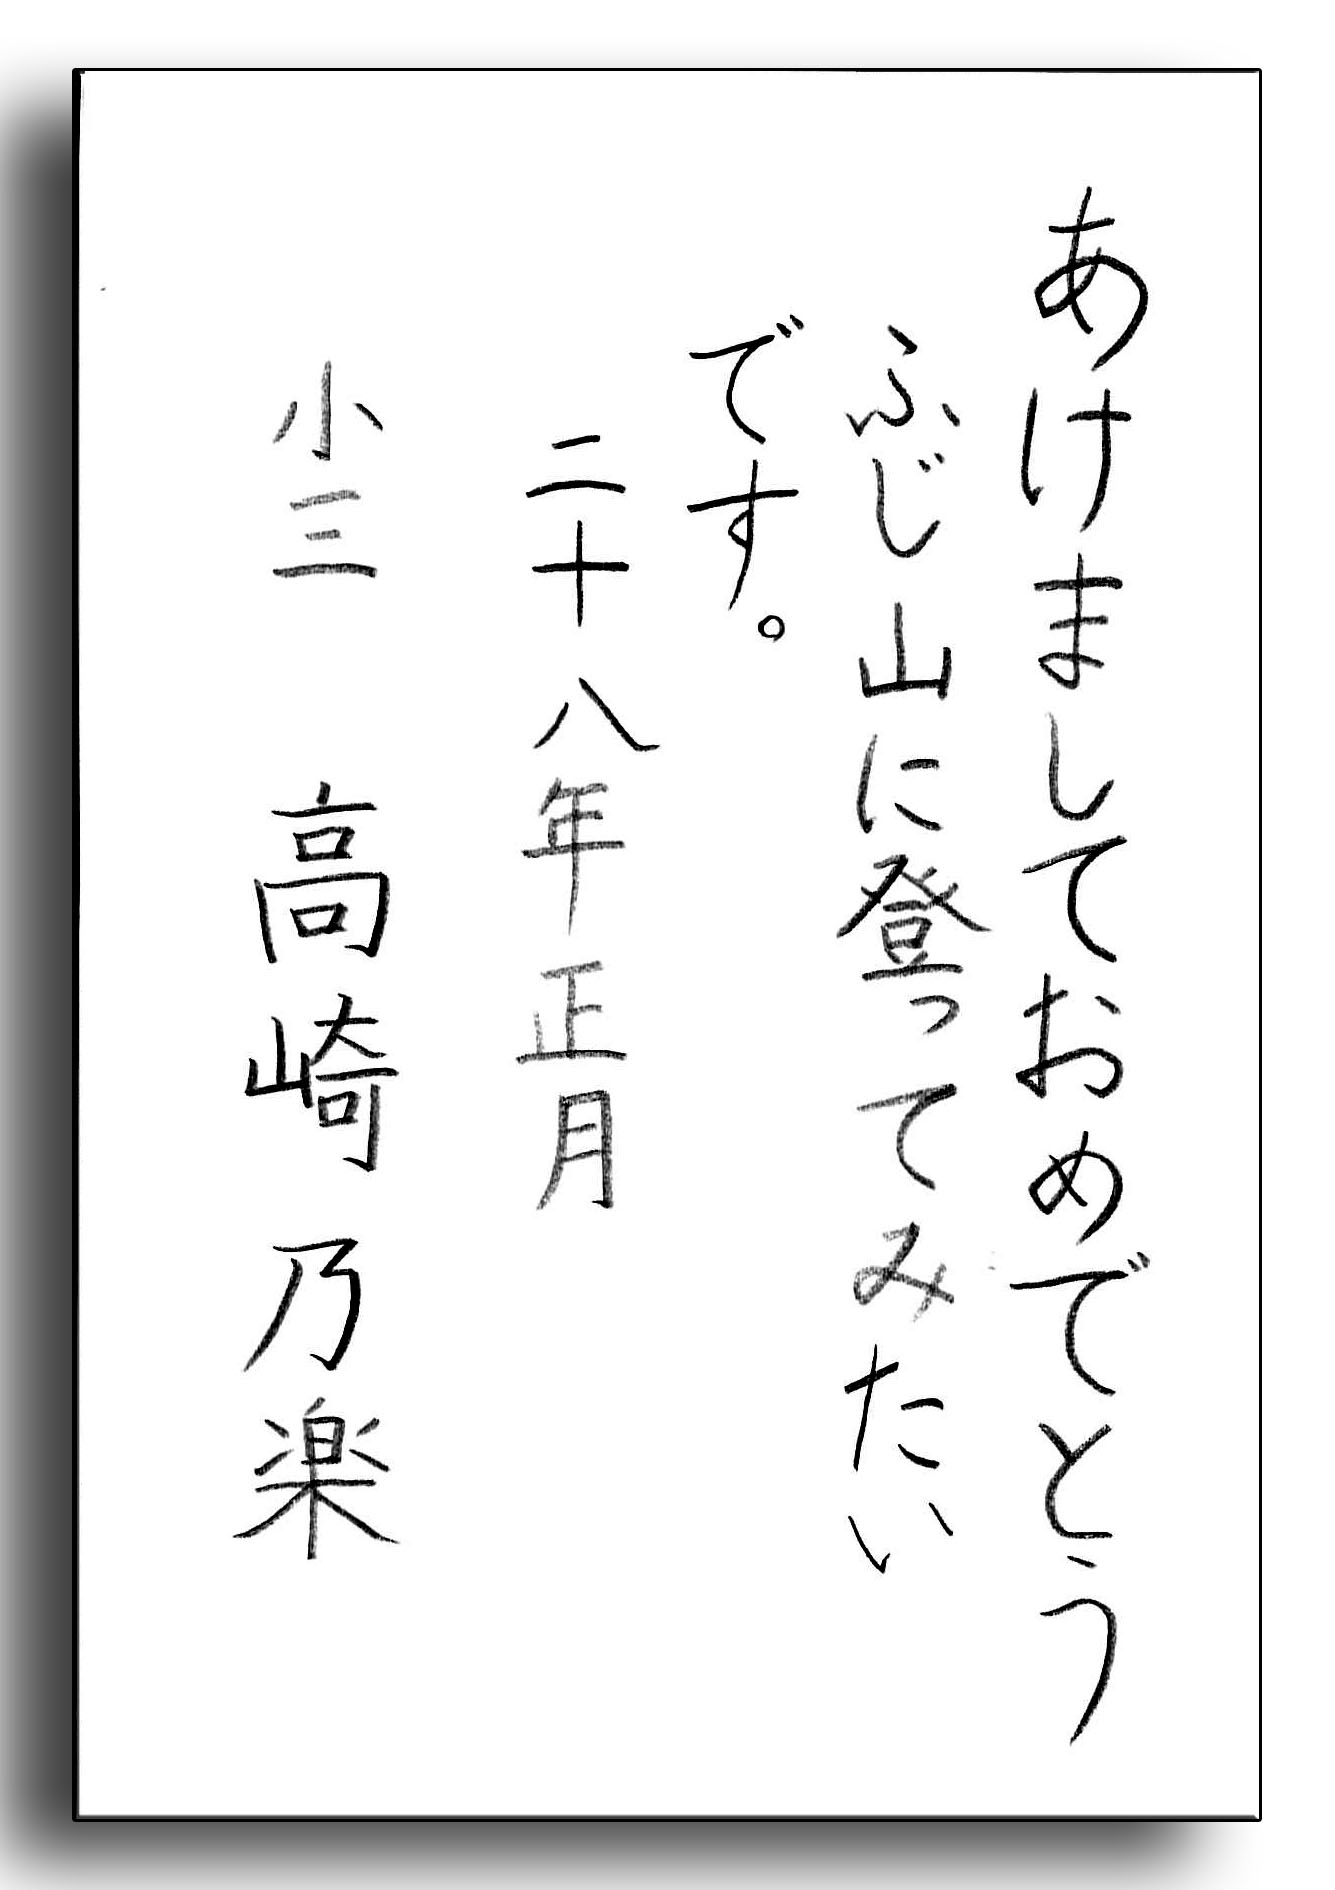 あけましておめでとう
ふじ山に登ってみたい
です。
二十八年正月
小三 高崎乃楽